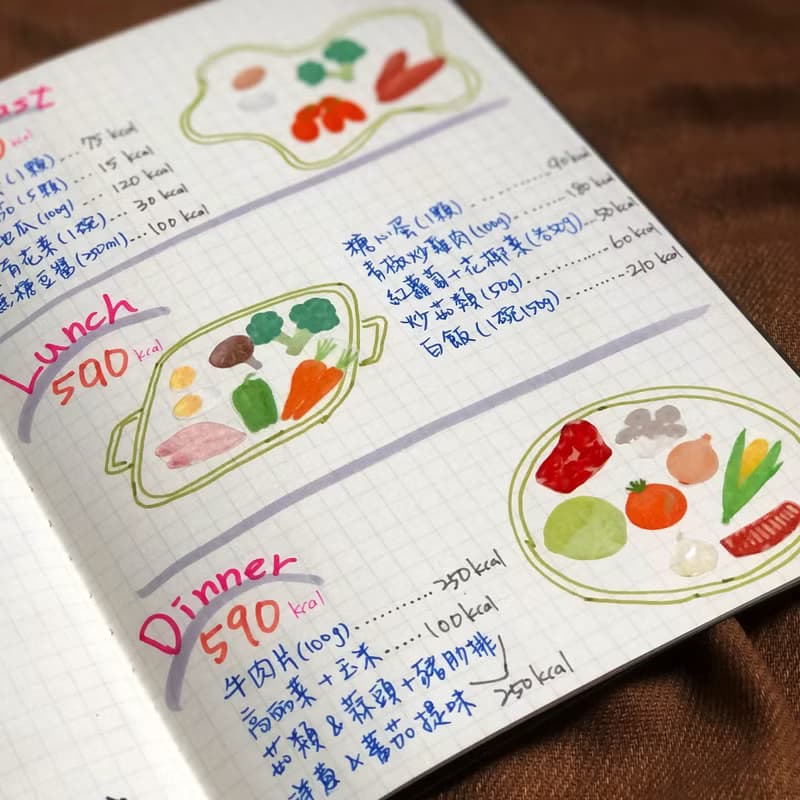 ast
0 kcal
(1顆)....75 kcal
(5顆) .. 15 kcal
地瓜(100g) .... 120 kcal
青花菜(1碗)... 30 kcal
糖豆漿(250ml)...100 kcal
Lunch
590 kcal
糖心蛋(1顆)............90 kcal
青椒炒雞肉(100g)..........180 kcal
紅蘿蔔+花椰菜(各50g)...50 kcal
炒菇類(50g)............60 kcal
白飯(1碗150g)..........210 kcal
Dinner
590 kcal
牛肉片(100g)............250 kcal
高麗菜+玉米......100 kcal
菇類&蒜頭+豬肋排
洋蔥&蕃茄提味 250 kcal